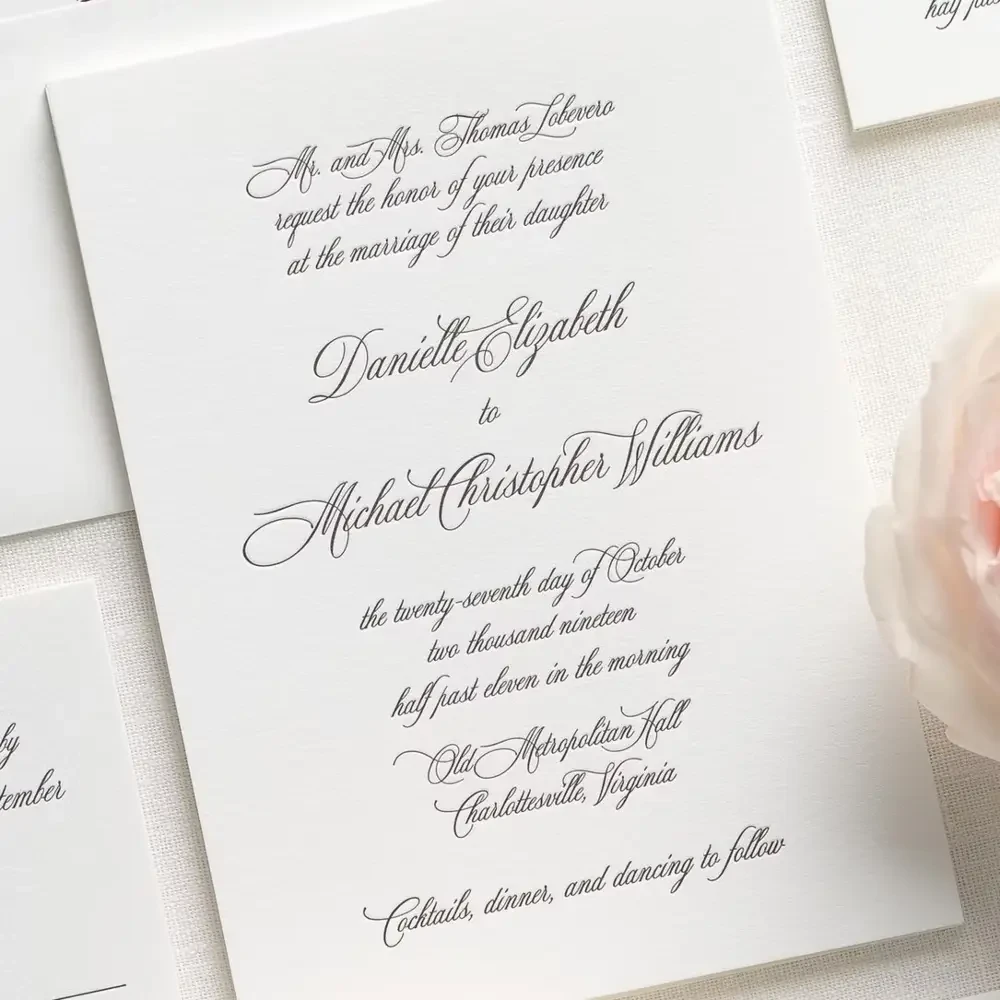 Mr. and Mrs. Thomas Lobevero
request the honor of your presence
at the marriage of their daughter
Danielle Elizabeth
to
Michael Christopher Williams
the twenty-seventh day of October
two thousand nineteen
half past eleven in the morning
Old Metropolitan Hall
Charlottesville, Virginia
Cocktails, dinner, and dancing to follow
half
by
tember